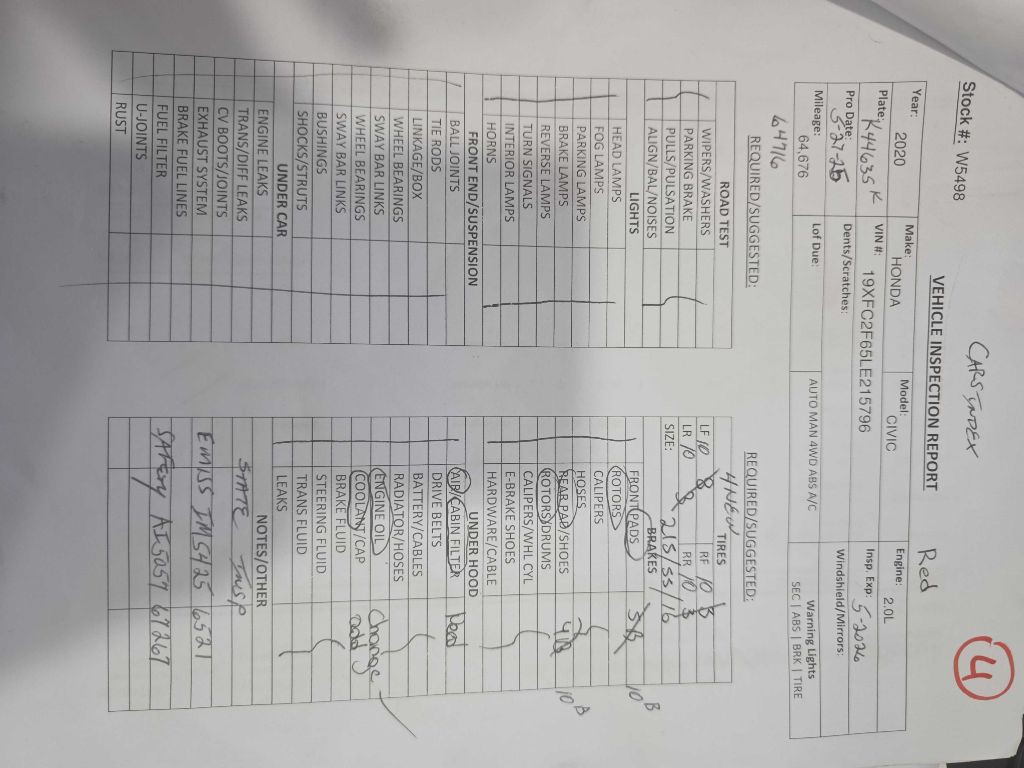 CARS INDEX
Red
4
Stock #: W5498
VEHICLE INSPECTION REPORT
Year: 2020 Make: HONDA Model: CIVIC Engine: 2.0L
Plate: K44635K VIN #: 19XFC2F65LE215796 Insp. Exp: 5-2026
Pro Date: 5-27-25 Dents/Scratches: Windshield/Mirrors:
Mileage: 64,676 Lof Due: AUTO MAN 4WD ABS A/C Warning Lights
SEC | ABS | BRK | TIRE
64716
REQUIRED/SUGGESTED:
ROAD TEST
WIPERS/WASHERS
PARKING BRAKE
PULLS/PULSATION
ALIGN/BAL/NOISES
LIGHTS
HEAD LAMPS
FOG LAMPS
PARKING LAMPS
BRAKE LAMPS
REVERSE LAMPS
TURN SIGNALS
INTERIOR LAMPS
HORNS
FRONT END/SUSPENSION
BALL JOINTS
TIE RODS
LINKAGE/BOX
WHEEL BEARINGS
SWAY BAR LINKS
WHEEL BEARINGS
SWAY BAR LINKS
BUSHINGS
SHOCKS/STRUTS
UNDER CAR
ENGINE LEAKS
TRANS/DIFF LEAKS
CV BOOTS/JOINTS
EXHAUST SYSTEM
BRAKE FUEL LINES
FUEL FILTER
U-JOINTS
RUST
REQUIRED/SUGGESTED:
4 NEW TIRES
LF 10 8 RF 10 8
LR 10 8 RR 10 8
SIZE: 215/55/16
BRAKES
FRONT PADS 10B
ROTORS
CALIPERS
HOSES
REAR PAD/SHOES 10B
ROTORS/DRUMS
CALIPERS/WHL CYL
E-BRAKE SHOES
HARDWARE/CABLE
UNDER HOOD
AIR/CABIN FILTER Need
DRIVE BELTS
BATTERY/CABLES
RADIATOR/HOSES
ENGINE OIL Change
COOLANT/CAP add
BRAKE FLUID
STEERING FLUID
TRANS FLUID
LEAKS
NOTES/OTHER
STATE INSP
EMISS IM5425 6521
SAFETY AI5059 69269